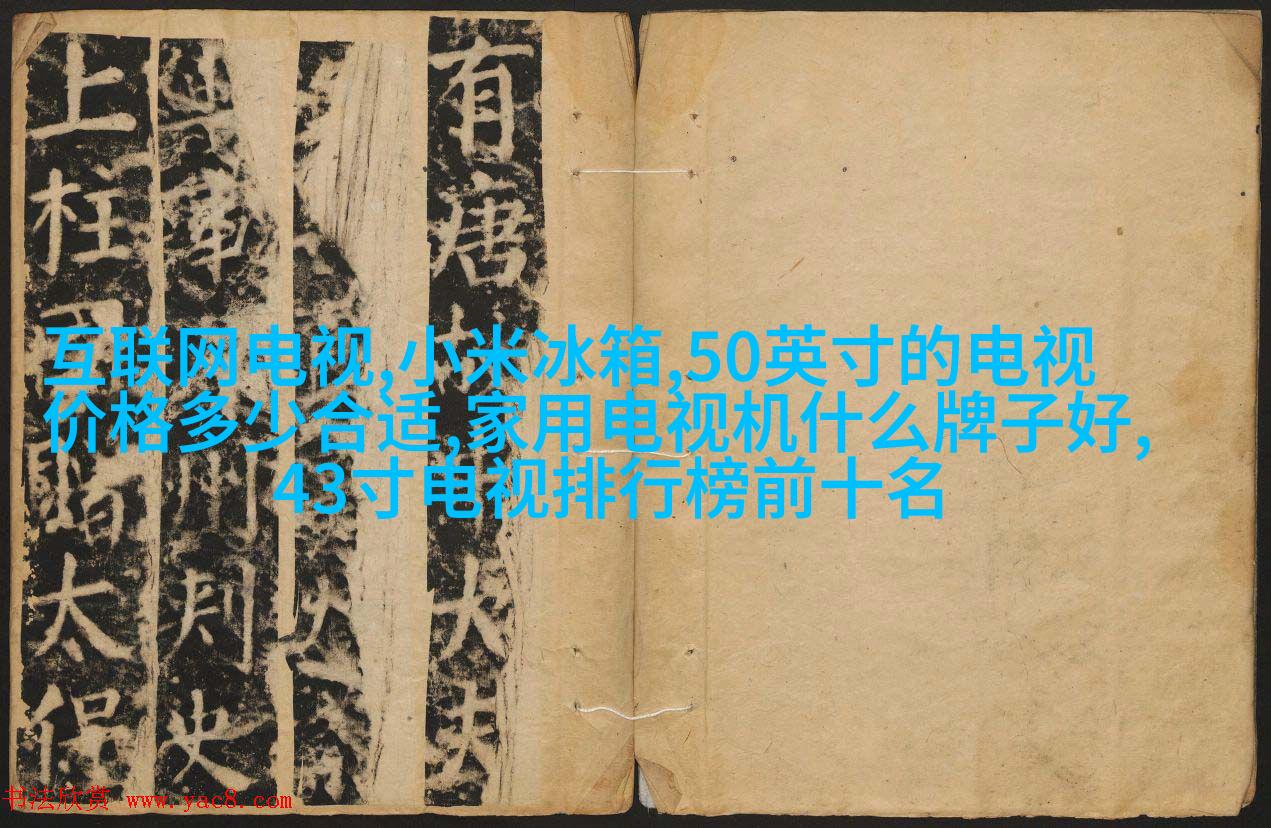 有唐故大夫
軍州刺史
上柱國贈太保
互联网电视,小米冰箱,50英寸的电视
价格多少合适,家用电视机什么牌子好,
43寸电视排行榜前十名
书法欣赏 www.yac8.com